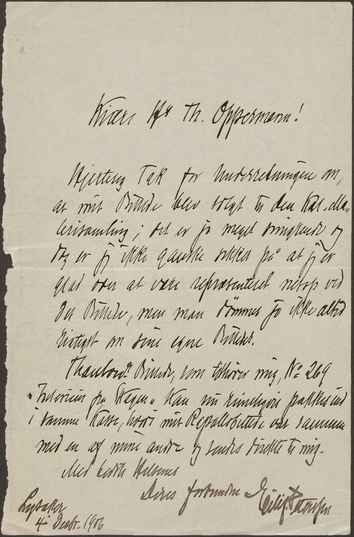 Kjære Hr Th. Oppermann!
Hjertelig Tak for Underretningen om,
at mit Billede blev solgt til den Kgl. Ma-
lerisamling; det er jo meget smigrende og
dog er jeg ikke ganske sikker på at jeg er
glad over at være repræsenteret netop ved
det Billede, men man dømmer jo ikke altid
rigtigst om sine egne Billeder.
Thaulows Billede, som tilhører mig, No 269
kan rimeligvis pakkes ind
i samme Kasse, hvori mit er sammen
med en af mine andre og sendes direkte til mig.
Med Hilsener
Deres forbundne Eilif Peterssen
Lysaker
4de Decbr. 1906